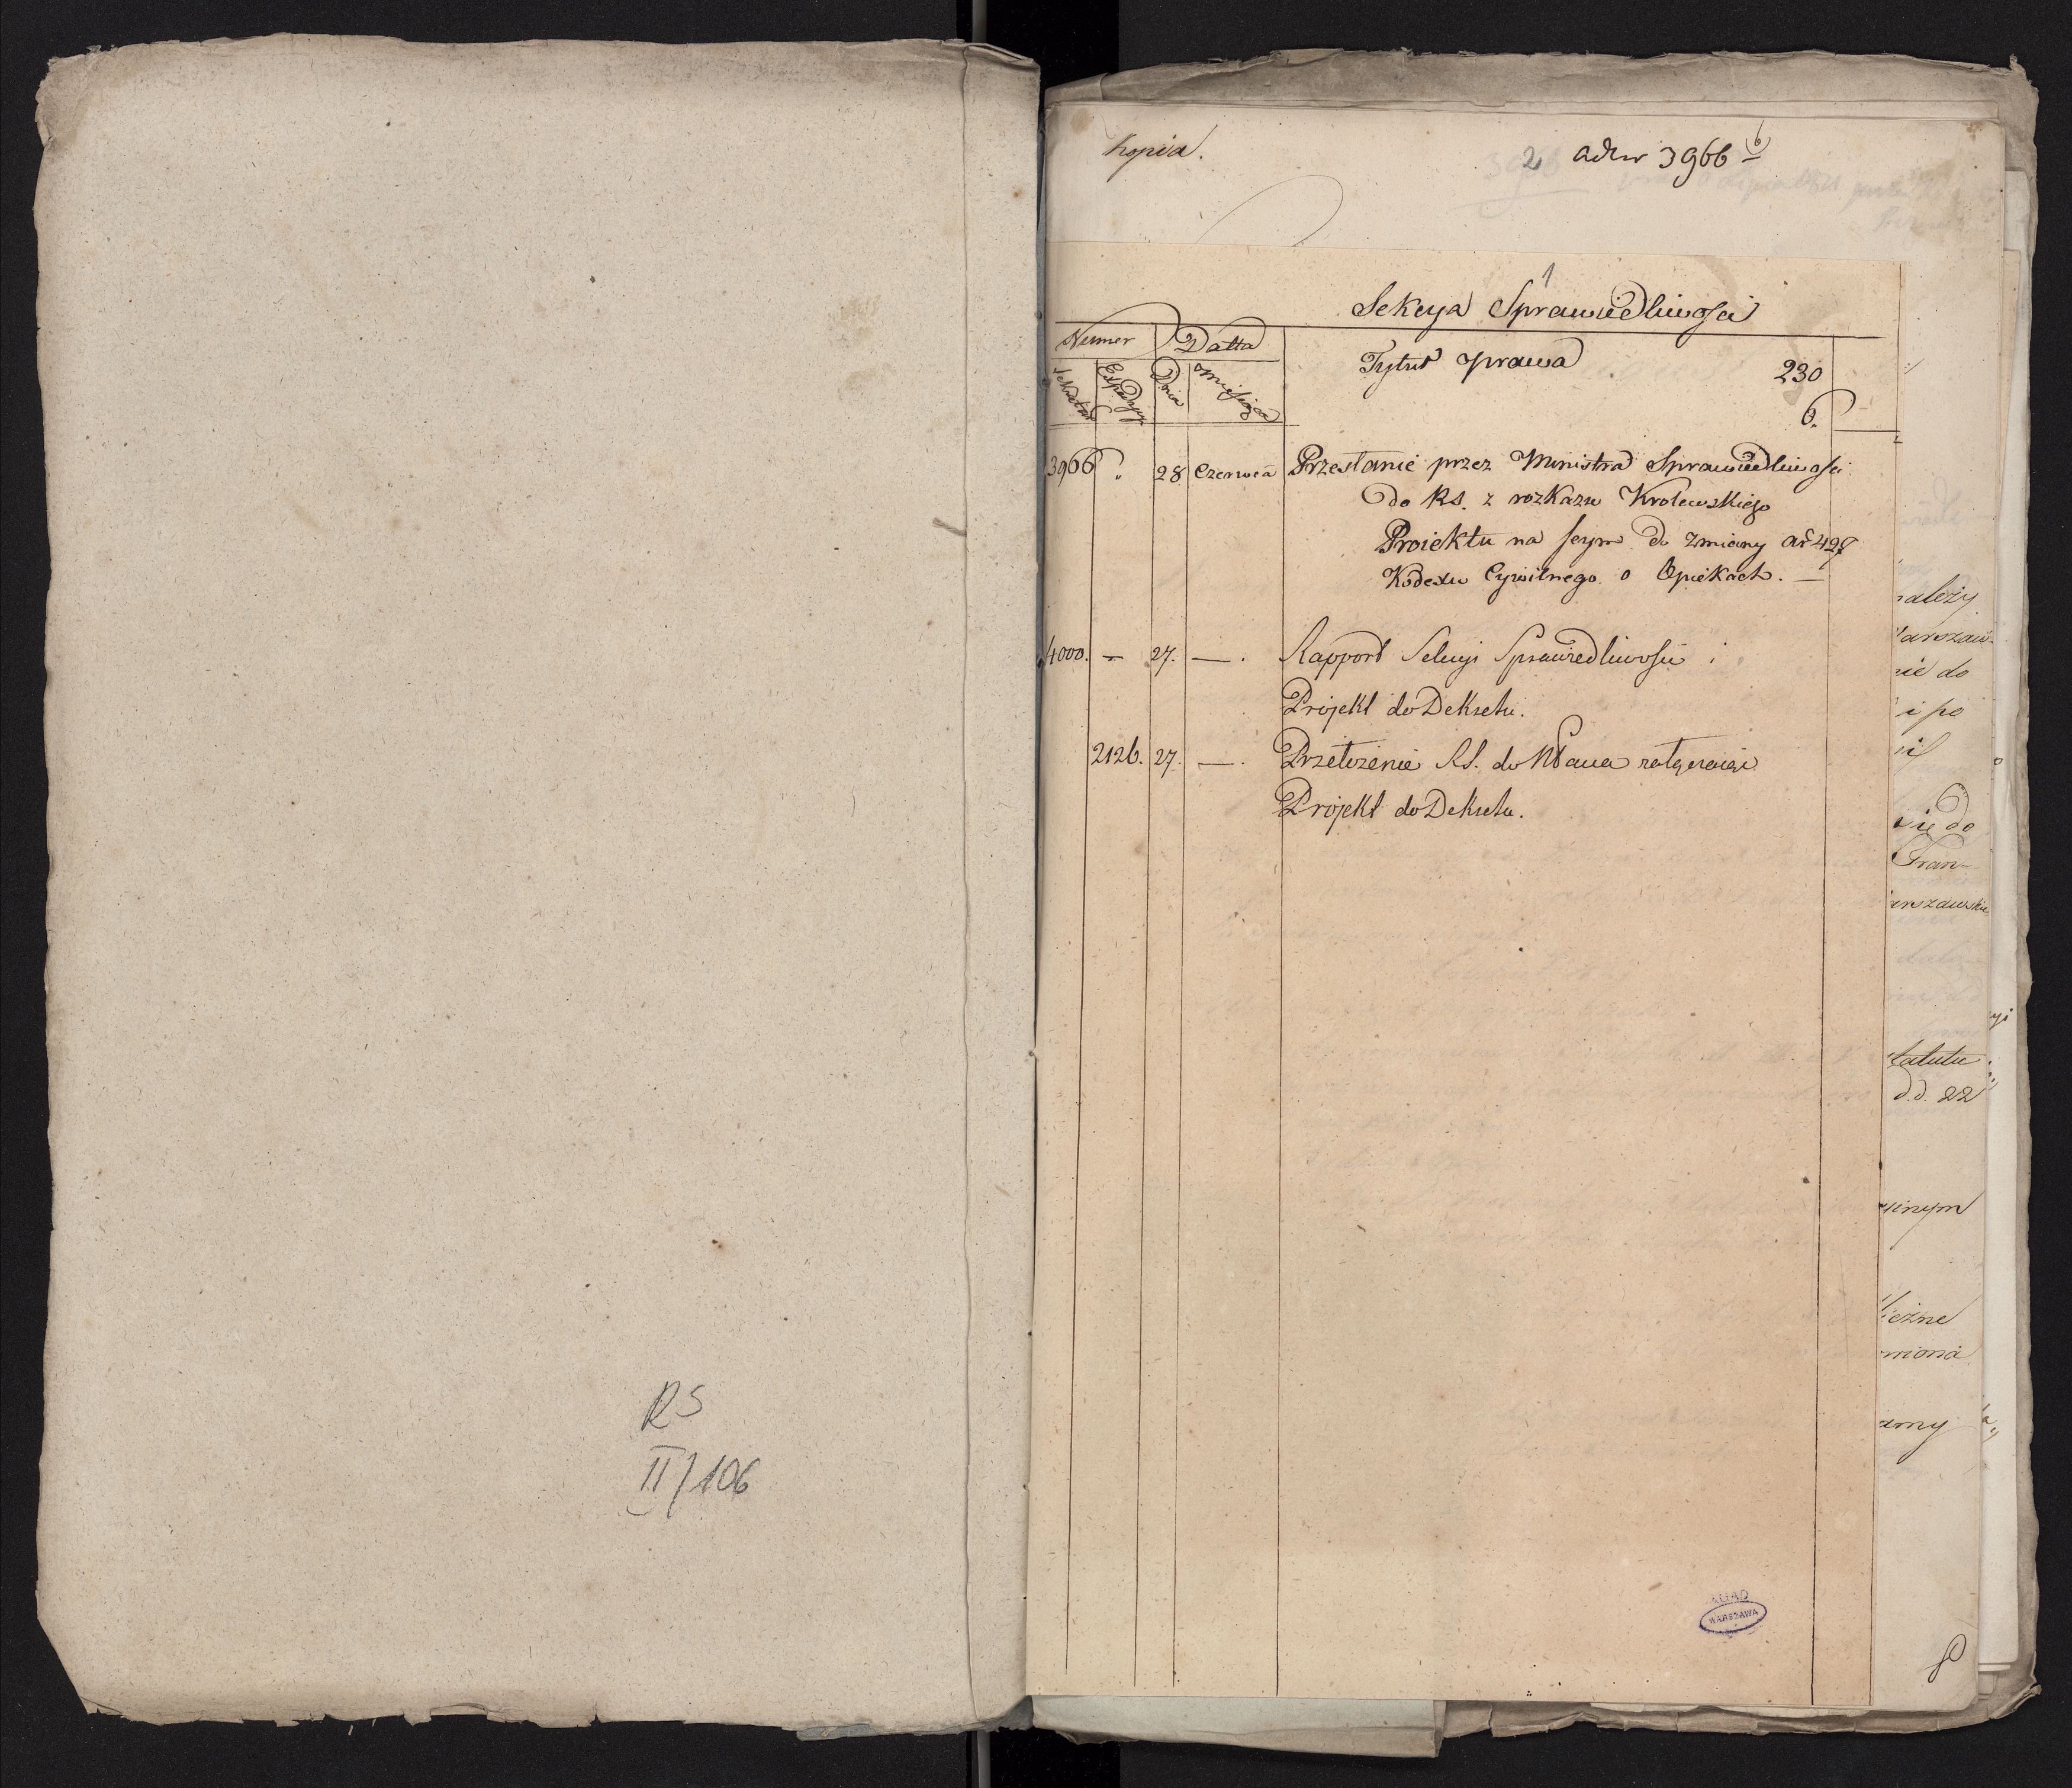 RS
II/106
Kopia.
2 ad nr 3966 b)
1
Sekcya Sprawiedliwości
Numer Datta
Tytuł sprawa 230
Expedycyi Dnia Miesiąca
6.
3966 28 Czerwca Przesłanie przez Ministra Sprawiedliwości
do RS. z rozkazu Krolewskiego
Proiektu na seym do zmiany
Kodexu Cywilnego o Opiekach. —
4000. — 27. —. Rapport Sekcyi Sprawiedliwości i
Projekt do Dekretu.
2126. 27. —. Przełożenie RS. do
Projekt do Dekretu.
 należy
arszaw-
nie do
i po
się do
Fran-
arszawskie
tatutu
d.d. 22
amy
AGAD
WARSZAWA